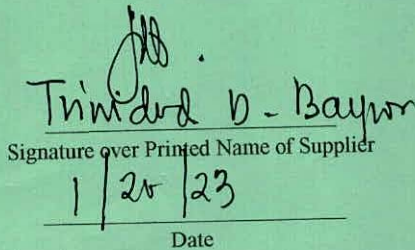 Trinidad D. Bayron
Signature over Printed Name of Supplier
1/20/23
Date